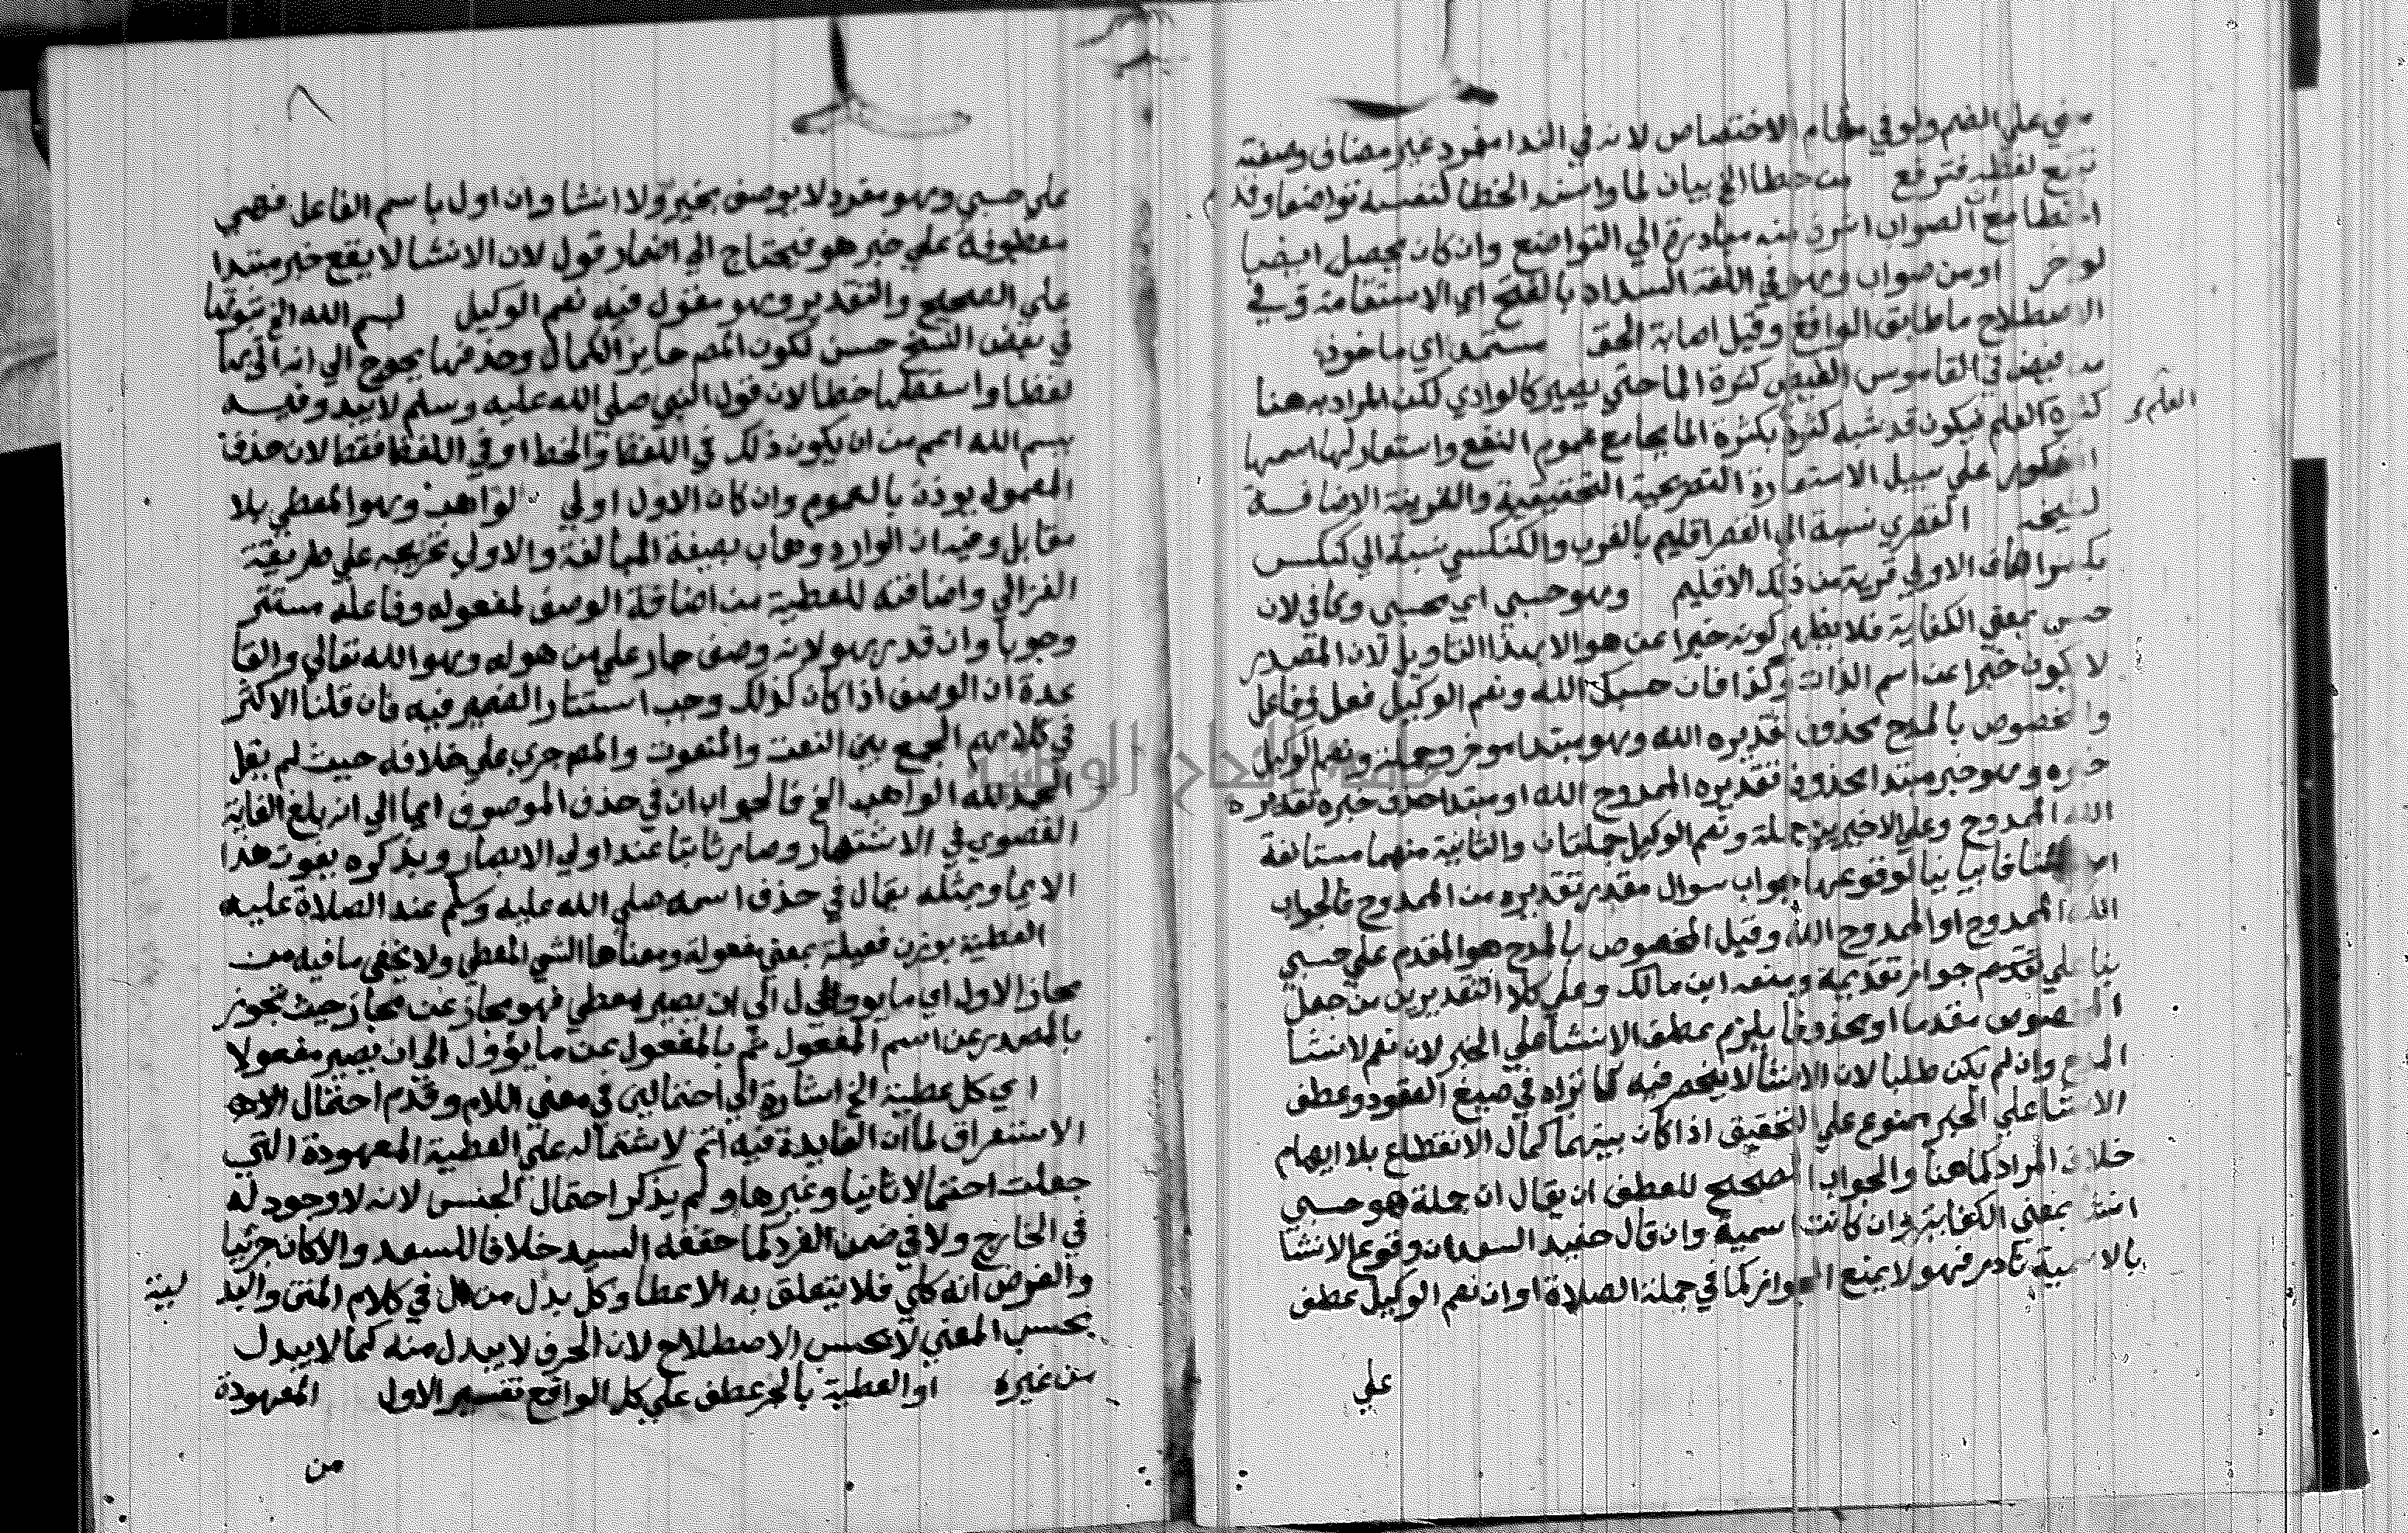 مبني علي الضم ولو في مقام الاختصاص لانه في الندا مفرد غير مضاف وصفته
تتبع لفظه فترفع من خطا الخ بيان لما واسند الخطا لنفسه تواضعا وقدم
الخطا مع ان الصواب اشرف منه مبادرة الي التواضع وان كان يحصل ايضا
لو اخر او من صواب وهو في اللغة السداد بالفتح اي الاستقامة وفي
الاصطلاح ما طابق الواقع وقيل اصابة الحق مستمد اي ماخوذ
من فيض في القاموس الفيض كثرة الما حتي يصير كالوادي لكن المراد به هنا
كثرة العلم فيكون قد شبه كثرة العلم بكثرة الما بجامع عموم النفع واستعار لها اسمها
المذكور علي سبيل الاستعارة التصريحية التحقيقية والقرينة الاضافة
لشيخه نسبة الي اقليم بالغرب والكنكسي نسبة الي كنكس
بكسر الكاف الاولي قرية من ذلك الاقليم وهو حسبي اي محسبي وكافي لان
حسب بمعني الكفاية فلا يظهر كونه خبرا عن هو الا بهذا التاويل لان المصدر
لا يكون خبرا عن اسم الذات وكذا فان حسبك الله ونعم الوكيل فعل وفاعل
والمخصوص بالمدح محذوف تقديره الله وهو مبتدا موخر وجملة ونعم الوكيل
خبره وهو خبر مبتدا محذوف تقديره الممدوح الله او مبتدا حذف خبره تقديره
الله الممدوح وعلي الاخيرين جملة ونعم الوكيل جملتان والثانية منهما مستانفة
استئنافا بيانيا لوقوعها جواب سوال مقدر تقديره من الممدوح فالجواب
الله الممدوح او الممدوح الله وقيل المخصوص بالمدح هو المقدم علي حسبي
بنا علي تقديم جواز تقديمه ومنعه ابن مالك وعلي كلا التقديرين من جعل
المخصوص مقدما او محذوفا يلزم عطف الانشا علي الخبر لان نعم لانشا
المدح وان لم يكن طلبا لان الانشا لا ينحصر فيه كما نراه في صيغ العقود وعطف
الانشا علي الخبر ممنوع علي التحقيق اذا كان بينهما كمال الانقطاع بلا ايهام
خلاف المراد كما هنا والجواب الصحيح للعطف ان يقال ان جملة هو حسبي
انشا بمعني الكفاية وان كانت اسمية وان قال حفيد السعد ان وقوع الانشا
بالاسمية نادر فهو لا يمنع الجواز كما في جملة الصلاة او ان نعم الوكيل عطف
علي
علي حسبي وهو مفرد لا يوصف بخبرية ولا انشا وان اول باسم الفاعل فهي
معطوفة علي خبر هو فيحتاج الي اضمار قول لان الانشا لا يقع خبر مبتدا
علي الصحيح والتقدير وهو مقول فيه نعم الوكيل بسم الله الخ ثبوتها
في بعض النسخ حسن لكون المصنف حايز الكمال وحذفها يحوج الي انه اتي بها
لفظا واسقطها خطا لان قول النبي صلي الله عليه وسلم لا يبدو فيه
ببسم الله اعم من ان يكون ذلك في اللفظ والخط او في اللفظ فقط لان حذف
المعمول يوذن بالعموم وان كان الاول اولي لواهب وهو المعطي بلا
مقابل وفيه ان الوارد وهاب بصيغة المبالغة والاولي تخريجه علي طريقة
الغزالي واضافته للعطية من اضافة الوصف لمفعوله وفاعله مستتر
وجوبا وان قدر بهو لانه وصف جار علي من هو له وهو الله تعالي والقا
عدة ان الوصف اذا كان كذلك وجب استتار الضمير فيه فان قلنا الاكثر
في كلامهم الجمع بين النعت والمنعوت والمصنف جري علي خلافه حيث لم يقل
الحمد لله الواهب الخ فالجواب ان في حذف الموصوف ايما الي انه بلغ الغاية
القصوي في الاشتهار وصار ثابتا عند اولي الابصار وبذكره يفوت هذا
الايما وبمثله يقال في حذف اسمه صلي الله عليه وسلم عند الصلاة عليه
العطية بوزن فعيلة بمعني مفعولة ومعناها الشي المعطي ولا يخفي ما فيه من
مجاز الاول اي ما يوول الي ان يصير معطي فهو مجاز عن مجاز حيث تجوز
بالمصدر عن اسم المفعول ثم بالمفعول عن ما يؤول الي ان يصير مفعولا
اي كل عطية الخ اشارة الي احتمالين في معني اللام وقدم احتمال
الاستغراق لما ان الفايدة فيه اتم لاشتماله علي العطية المعهودة التي
جعلت احتمالا ثانيا وغيرها ولم يذكر احتمال الجنس لانه لا وجود له
في الخارج ولا في ضمن الفرد كما حققه السيد خلافا للسعد والا كان جزئيا
والفرض انه كلي فلا يتعلق به الاعطا وكل بدل من ال في كلام المتن والبد لية
بحسب المعني لا بحسب الاصطلاح لان الحرف لا يبدل منه كما لا يبدل
من غيره او العطية بالجر عطف علي كل الواقع تفسير الاول المعهودة
من